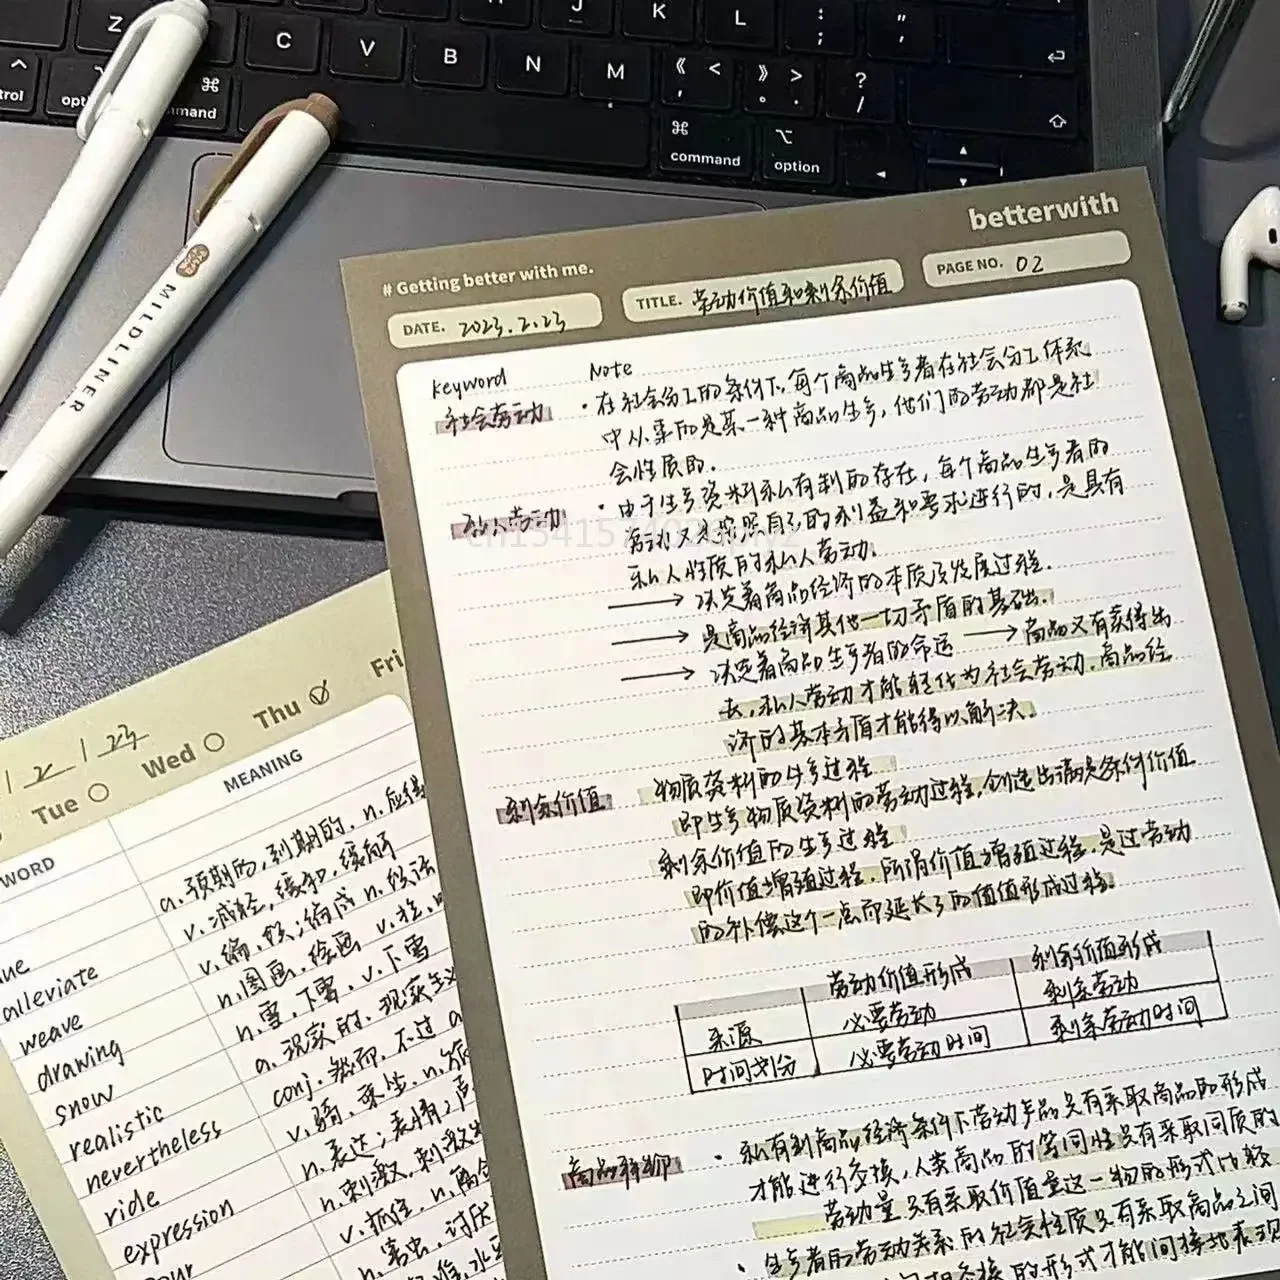 Z
C
V
B
N
M
J
K
L
: ;
" '
《 < ,
》 > 。 .
? /
⌘
command
⌥
option
MILDLINER
betterwith
# Getting better with me.
DATE. 2023.2.23
TITLE. 劳动价值和剩余价值
PAGE NO. 02
keyword Note
社会劳动 ·在社会分工的条件下,每个商品生产者在社会分工体系
中从事的是某一种商品生产,他们的劳动都是社
会性质的.
私人劳动 ·由于生产资料私有制的存在,每个商品生产者的
劳动又是按照自己的利益和要求进行的,是具有
私人性质的私人劳动.
→ 决定着商品经济的本质及发展过程.
→ 是商品经济其他一切矛盾的基础.
→ 决定着商品生产者的命运 → 商品又有卖得出
去,私人劳动才能转化为社会劳动.商品经
济的基本矛盾才能得以解决.
剩余价值 物质资料的生产过程
即生产物质资料的劳动过程,创造出满足条件价值
剩余价值的生产过程
即价值增殖过程.所谓价值增殖过程,是过劳动
的补偿这个一点而延长了的价值形成过程.
劳动价值形成 剩余价值形成
来源 必要劳动 剩余劳动
时间划分 必要劳动时间 剩余劳动时间
商品拜物 ·私有制商品经济条件下劳动产品只有采取商品的形式
才能进行交换,人类商品的等同性只有采取同质的
劳动量只有采取价值量这一物的形式比较
·生产者的劳动关系的社会性质只有采取商品之间
交换的形式才能间接地表现
2 / 23
Tue Wed Thu Fri
WORD MEANING
a.预期的,到期的. n.应得
alleviate v.减轻,缓和,缓解
weave v.编,织;编成 n.织法
drawing n.图画,绘画
snow n.雪,下雪. v.下雪
realistic a.现实的.现实主义
nevertheless conj.然而,不过
ride v.骑,乘坐.n.
expression n.表达;表情;
n.刺激,刺激
v.抓住.n.
n.害虫,讨厌